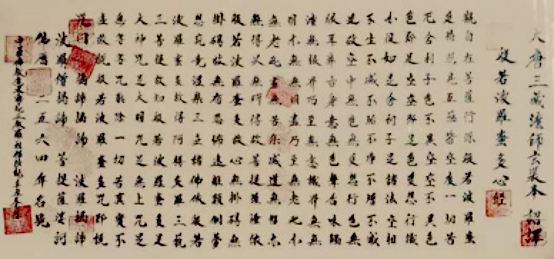 大唐三藏法師玄奘奉 詔譯
般若波羅蜜多心經
觀自在菩薩行深般若波羅蜜
多時照見五蘊皆空度一切苦
厄舍利子色不異空空不異色
色即是空空即是色受想行識
亦復如是舍利子是諸法空相
不生不滅不垢不淨不增不減
是故空中無色無受想行識無
眼耳鼻舌身意無色聲香味觸
法無眼界乃至無意識界無無
明亦無無明盡乃至無老死亦
無老死盡無苦集滅道無智亦
無得以無所得故菩提薩埵依
般若波羅蜜多故心無罣礙無
罣礙故無有恐怖遠離顛倒夢
想究竟涅槃三世諸佛依般若
波羅蜜多故得阿耨多羅三藐
三菩提故知般若波羅蜜多是
大神咒是大明咒是無上咒是
無等等咒能除一切苦真實不
虛故說般若波羅蜜多咒即說
咒曰 揭諦揭諦 波羅揭諦
波羅僧揭諦 菩提薩婆訶
佛曆二五六四年